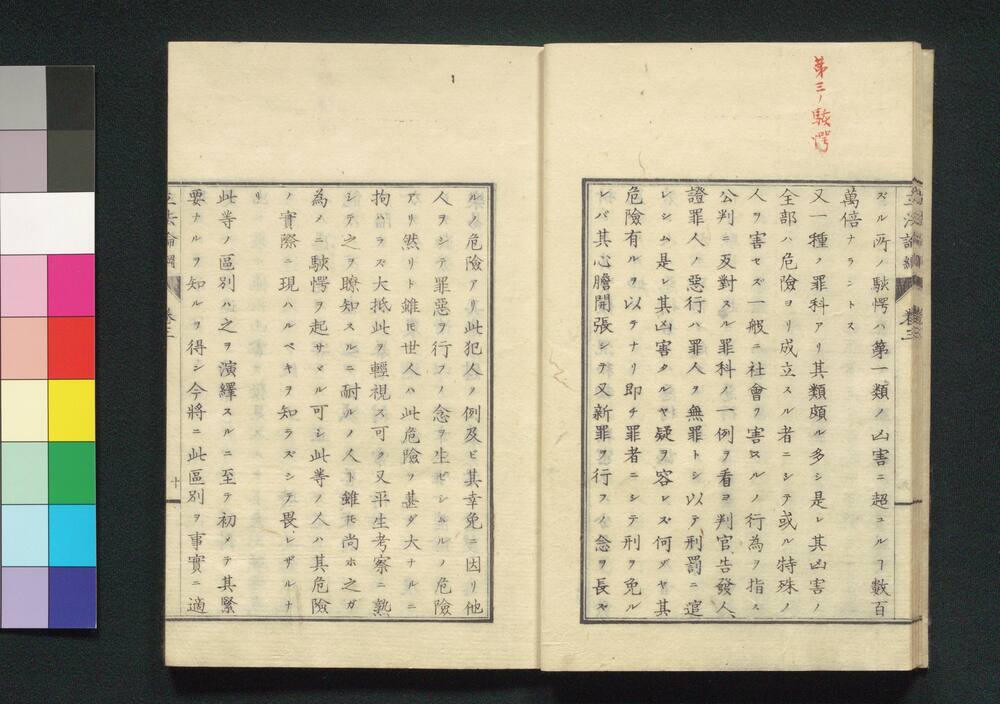 第三ノ駭愕
立法論綱 卷三
ズル所ノ駭愕ハ第一類ノ凶害ニ超ユルヿ數百
萬倍ナラントス
又一種ノ罪科アリ其類頗ル多シ是レ其凶害ノ
全部ハ危險ヨリ成立スル者ニシテ或ル特殊ノ
人ヲ害セズ一般ニ社會ヲ害スルノ行為ヲ指ス
公判ニ反對スル罪科ノ一例ヲ看ヨ判官、告發人、
證罪人ノ惡行ハ罪人ヲ無罪トシ以テ刑罰ニ逭
レシム是レ其凶害タルヤ疑ヲ容レズ何ゾヤ其
危險有ルヲ以テナリ即チ罪者ニシテ刑ヲ免ル
レバ其心膽開張シテ又新罪ヲ行フノ念ヲ長ズ
ルノ危險アリ此犯人ノ例及ビ其幸免ニ因リ他
人ヲシテ罪惡ヲ行フノ念ヲ生ゼシムルノ危險
アリ然リト雖𪜈世人ハ此危險ノ甚ダ大ナルニ
拘ハラズ大抵此ヲ輕視ス可ク又平生考察ニ熟
シテ之ヲ瞭知スルニ耐ルノ人ト雖𪜈尚ホ之ガ
為メニ駭愕ヲ起サヾル可シ此等ノ人ハ其危險
ノ實際ニ現ハルベキヲ知ラズシテ畏レザルナ
リ
此等ノ區別ハ之ヲ演繹スルニ至テ初メテ其緊
要ナルヲ知ルヲ得シ今將ニ此區別ヲ事實ニ適
立法論綱 卷三 十